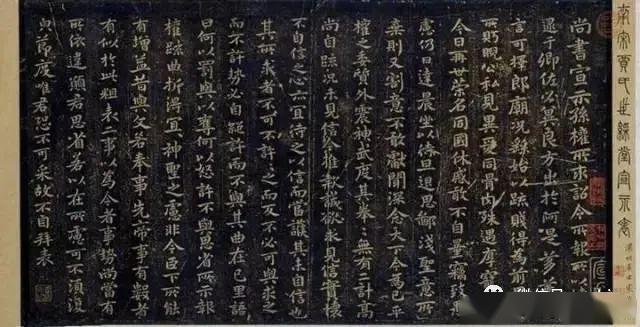 南宋賈氏世綵堂宣示表
尚書宣示孫權所求詔令所報所以
逮于卿佐必冀良方出於阿是芻
言可擇郎廟況繇始以疏賤得為前
所眄睨公私見異愛同骨肉殊遇厚寵
今日再世榮名同國休慼敢不自量竊致
慮仍日達晨坐以待旦退思鄙淺聖意所
棄則又割意不敢獻聞深念天下今為已平
權之委質外震神武度其拳拳無有二計高
尚自疏況未見信今推款誠欲求見信實懷
不自信之心亦宜待之以信而當護其未自信也
其所求者不可不許許之而反不必可與求之
而不許勢必自絕許而不與其曲在己里語
曰何以罰與以奪何以怒許不與思省所示報
權疏曲折得宜宜神聖之慮非今臣下所能
有增益昔與文若奉事先帝事有數者
有似於此粗表二事以為今者事勢尚當有
所依違願君思省若以在所慮可不須復
白節度唯君恐不可采故不自拜表